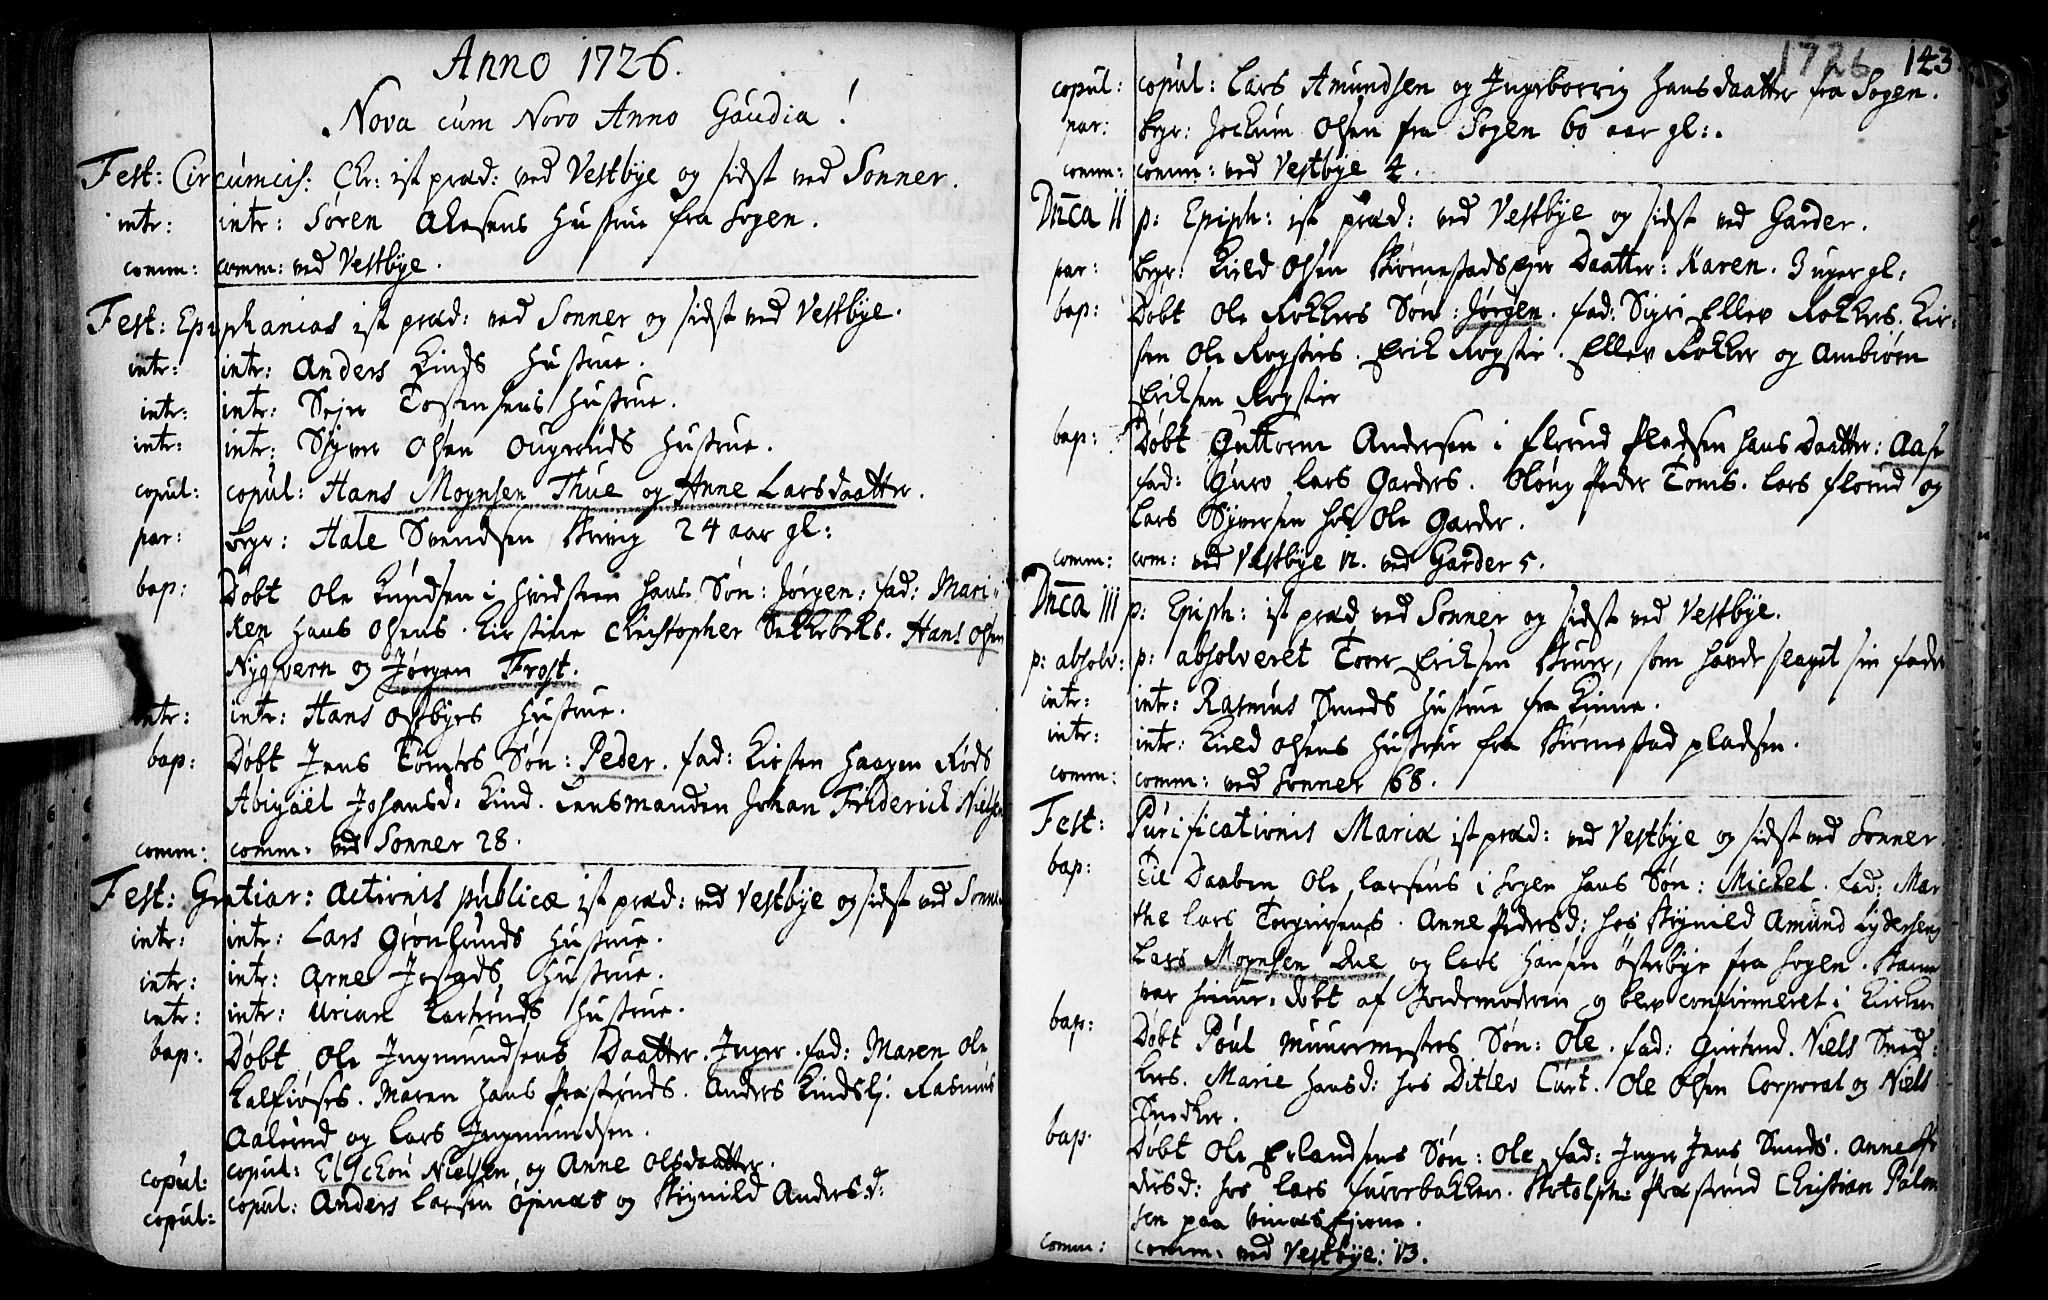 Anno 1726.
Nova cum Novo Anno Gaudia!
Fest: Circumcis: Chr: ist præd: ved Vestbÿe og sidst ved Sonner.
intr: intr: Søren Olesens Hustrue fra Sogen.
comm: comm: ved Vestbÿe.
Fest: Epiphanias ist præd: ved Sonner og sidst ved Vestbÿe.
intr: intr: Anders Kinds Hustrue.
intr: intr: Sejer Tostensens Hustrue.
intr: intr: Sÿver Olsen Hustrue.
copul: copul: Hans Moynsen Thue og Anne Larsdaatter.
par: begr: Hale Svendsen 24 aar gl:
bap: Døbt Ole Knudsen i Hvidsteen hans Søn: Jørgen: fad: Mari-
ken Hans Olsens. Kirstine Christopher Hans Olsen
Nÿqvern og Jørgen Frost.
intr: intr: Hans Østbÿes Hustrue.
bap: Døbt Jens Søn: Peder. fad: Kirsten Haagen Røds
Abigäel Johansd: Kind. Lensmanden Johan Friderick Nielsen
comm: comm: ved Sonner 28.
Fest: Gratiar: Actionis publicæ ist præd: ved Vestbÿe og sidst ved Sonner
intr: intr: Lars Grønlunds Hustrue.
intr: intr: Arne Hustrue.
intr: intr: Urian Hustrue.
bap: Døbt Ole Ingmundsens Daatter. Inger. fad: Maren Ole
Maren Hans Præsteruds. Anders Rasmus
Aalerud og Lars Ingmundsen.
copul: copul: Nielsen og Anne Olsdaatter.
copul: copul: Anders Larsen og Anders:d:
1726 143.
copul: copul: Lars Amundsen og Ingeborrig Hansdaatter fra Sogen.
par: begr: Jockum Olsen fra Sogen 60 aar gl:.
comm: comm: ved Vestbÿe 4.
Dnīca II p: Epiph: ist præd: ved Vestbÿe og sidst ved Garder.
par: begr: Kield Olsen Daatter: Karen. 3 uger gl:
bap: Døbt Ole Rokkers Søn: Jørgen. fad: Sigri Ellev Rokkers. Kir-
sten Ole Rogstirs. Erik Rogstir. Ellev Rokker og Ambiørn
Eriksen Rogstir
bap: Døbt Guttorm Andersen i Florud Pladsen hans Daatter: Aase
fad: Guro Lars Garders. Peder Toms. Lars Florud og
Lars Sÿversen hos Ole Garder.
comm: com: ved Vestbÿe 12. ved Garder 5.
Dnīca III p: Epiph: ist præd ved Sonner og sidst ved Vestbÿe.
p: absolv: p: absolveret Eriksen som havde slaget sin fader
intr: intr: Rasmus Smeds Hustrue fra Kinne.
intr: intr: Kield Olsens Hustrue fra pladsen.
comm: comm: ved Sonner 68.
Fest: Purificationis Mariæ ist præd: ved Vestbÿe og sidst ved Sonner.
bap: Til Daaben Ole Larsens i Sogen hans Søn: Michel. fad: Mar
the Lars Torgiersens. Anne Pedersd: hos Amund Lÿdersens
Lars Moynsen Due og Lars Hansen Østerbÿe fra Sogen.
var døbt af Jordemoderen og blev confirmeret i Kirken
bap: Døbt Poul Muurmesters Søn: Ole. fad: Giertrud. Niels Sned-
kers. Marie Hansd: hos Ditlev Curt. Ole Olsen Corporal og Niels
Snedker.
bap: Døbt Ole Erlandsens Søn: Ole. fad: Inger Jens Smeds. Anne
hos Lars Furrebakken. Christian
sen paa
comm: comm: ved Vestbÿe: 13.